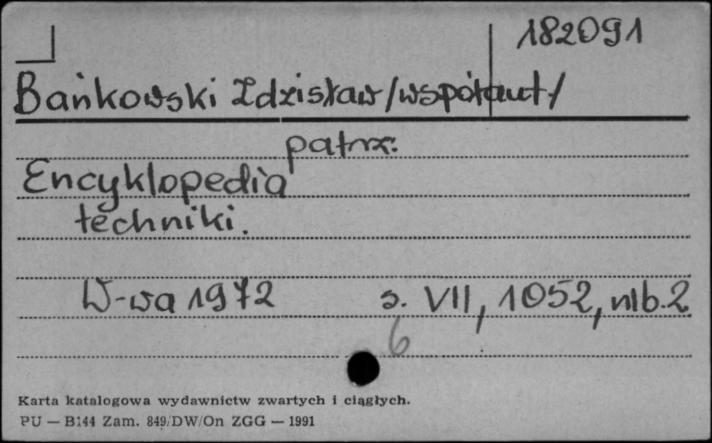 182091
Bańkowski Zdzisław/współaut/
patrz:
Encyklopedia
techniki.
W-wa 1972 s. VII, 1052, nlb. 2
6
Karta katalogowa wydawnictw zwartych i ciągłych.
PU — B144 Zam. 849/DW/On ZGG — 1991